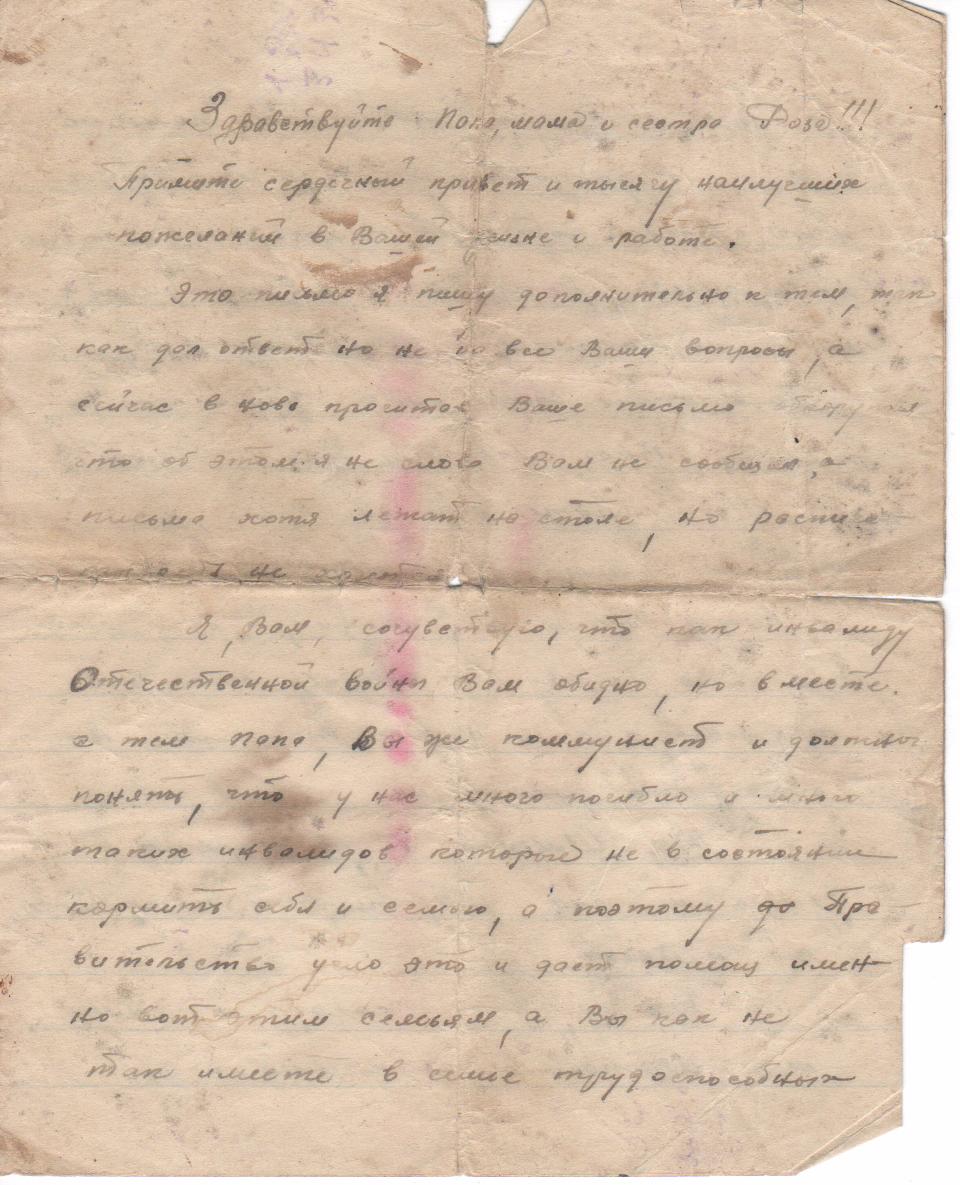 Здравствуйте Папа, мама и сестра Роза!!!
Примите сердечный привет и тысячу наилучших
пожеланий в Вашей жизне и работе.
Это письмо я пишу дополнительно к тем, так
как дал ответ но не на все Ваши вопросы, а
сейчас в ново прочитав Ваше письмо
что об этом я не слова Вам не сообщил, а
письма хотя лежат на столе, но
не
Я, Вам, сочувствую, что как инвалиду
Отечественной войны Вам обидно, но вместе
с тем Папа, Вы же коммунист и должны
понять, что у нас много погибло и много
таких инвалидов которые не в состоянии
кормить себя и семью, а поэтому до Пра-
вительство это и дает помощ имен-
но вот этим семьям, а Вы как не
так имеете в семье трудоспособных